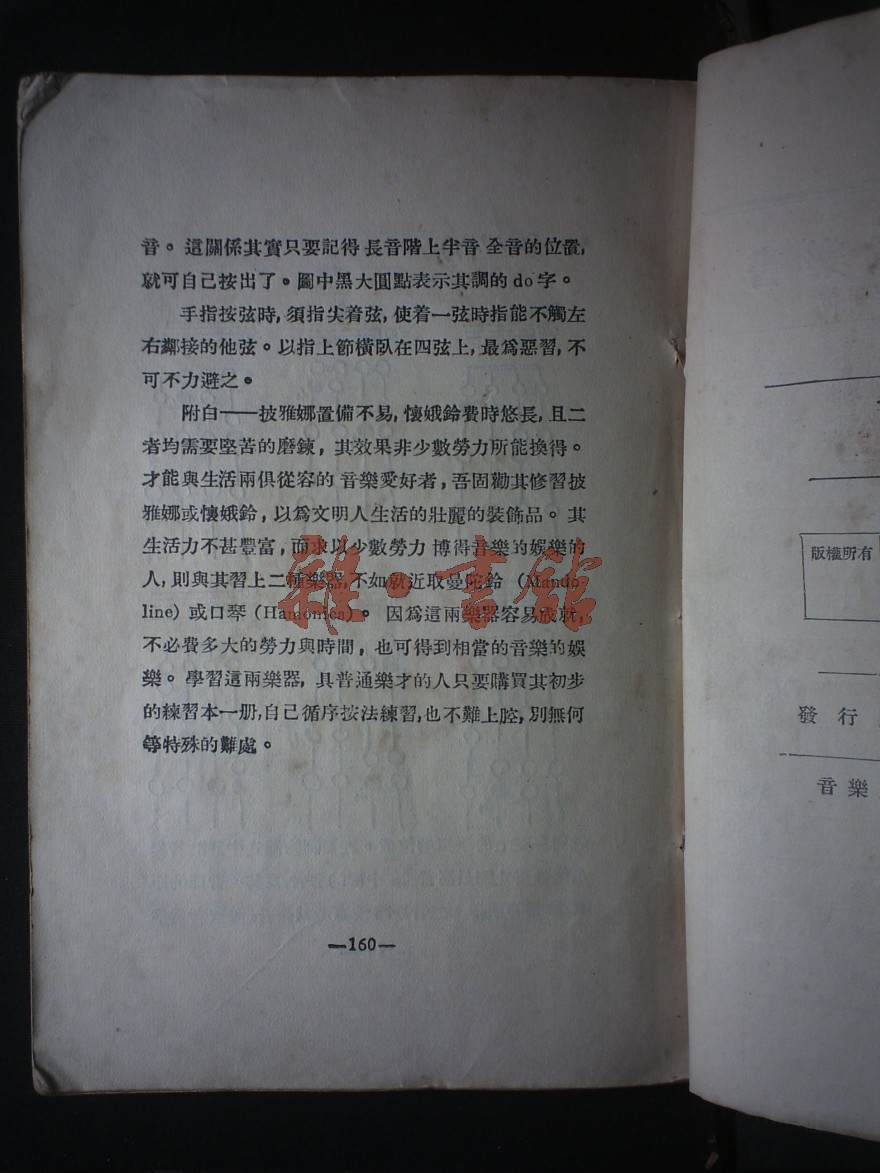 音。這關係其實只要記得長音階上半音全音的位置,
就可自己按出了。圖中黑大圓點表示其調的do字。
手指按弦時,須指尖着弦,使着一弦時指能不觸左
右鄰接的他弦。以指上節橫臥在四弦上,最爲惡習,不
可不力避之。
附白——披雅娜置備不易,懷娥鈴費時悠長,且二
者均需要堅苦的磨鍊,其效果非少數勞力所能換得。
才能與生活兩俱從容的音樂愛好者,吾固勸其修習披
雅娜或懷娥鈴,以爲文明人生活的壯麗的裝飾品。其
生活力不甚豐富,而求以少數勞力博得音樂的娛樂的
人,則與其習上二種樂器,不如就近取曼陀鈴(Mando-
line)或口琴(Hamonica)。因爲這兩樂器容易成就,
不必費多大的勞力與時間,也可得到相當的音樂的娛
樂。學習這兩樂器,具普通樂才的人只要購買其初步
的練習本一册,自己循序按法練習,也不難上腔,別無何
等特殊的難處。
—160—
雜·書館
版權所有
發行
音樂